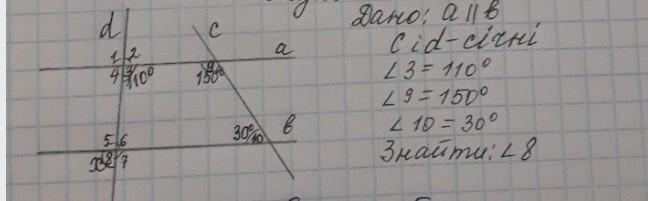 Дано: a || в
d
c
c i d - січні
1 2
a
4 3 110°
9
150°
∠3 = 110°
∠9 = 150°
∠10 = 30°
5 6
30° 10
в
x 8 7
Знайти: ∠8